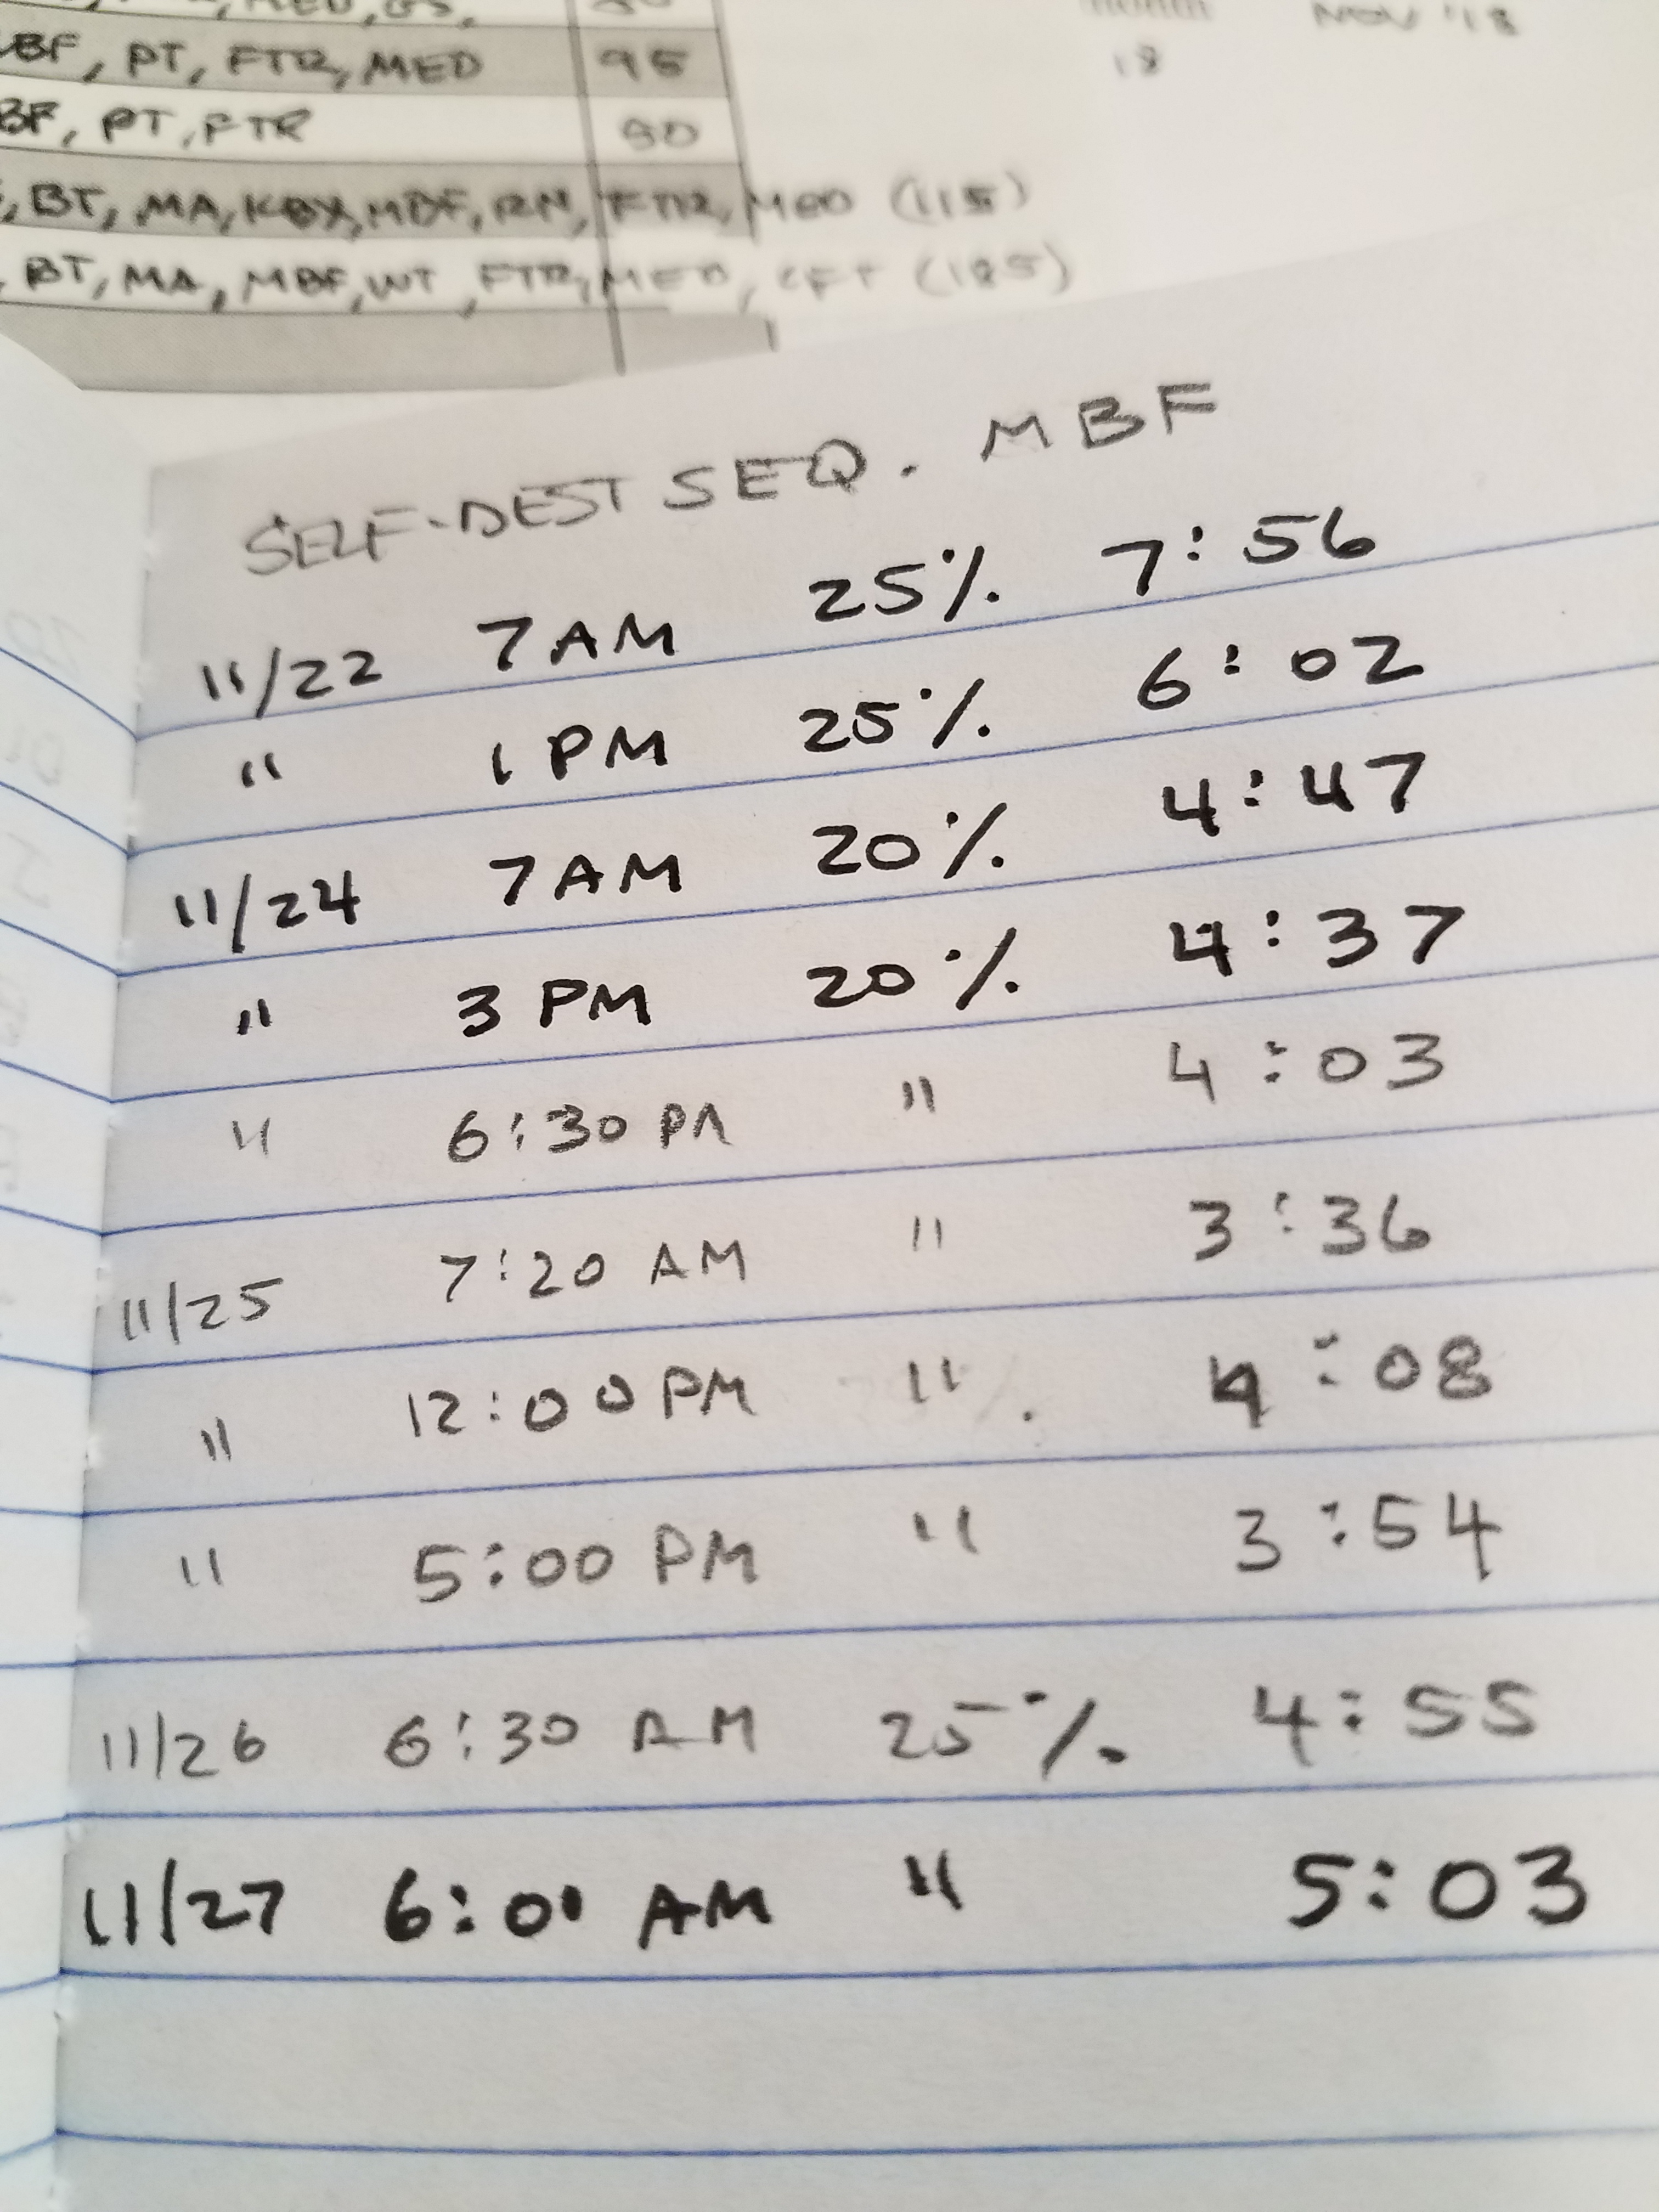 NOV '18
BF, PT, FTR, MED 95
18
BF, PT, FTR 90
, BT, MA, KBX, MBF, RN, FTR, MED (115)
BT, MA, MBF, WT, FTR, MED, (185)
SELF-DEST SEQ. MBF
11/22 7 AM 25% 7:56
" 1 PM 25% 6:02
11/24 7 AM 20% 4:47
" 3 PM 20% 4:37
" 6:30 PM " 4:03
11/25 7:20 AM " 3:36
" 12:00 PM " 4:08
" 5:00 PM " 3:54
11/26 6:30 AM 25% 4:55
11/27 6:00 AM " 5:03